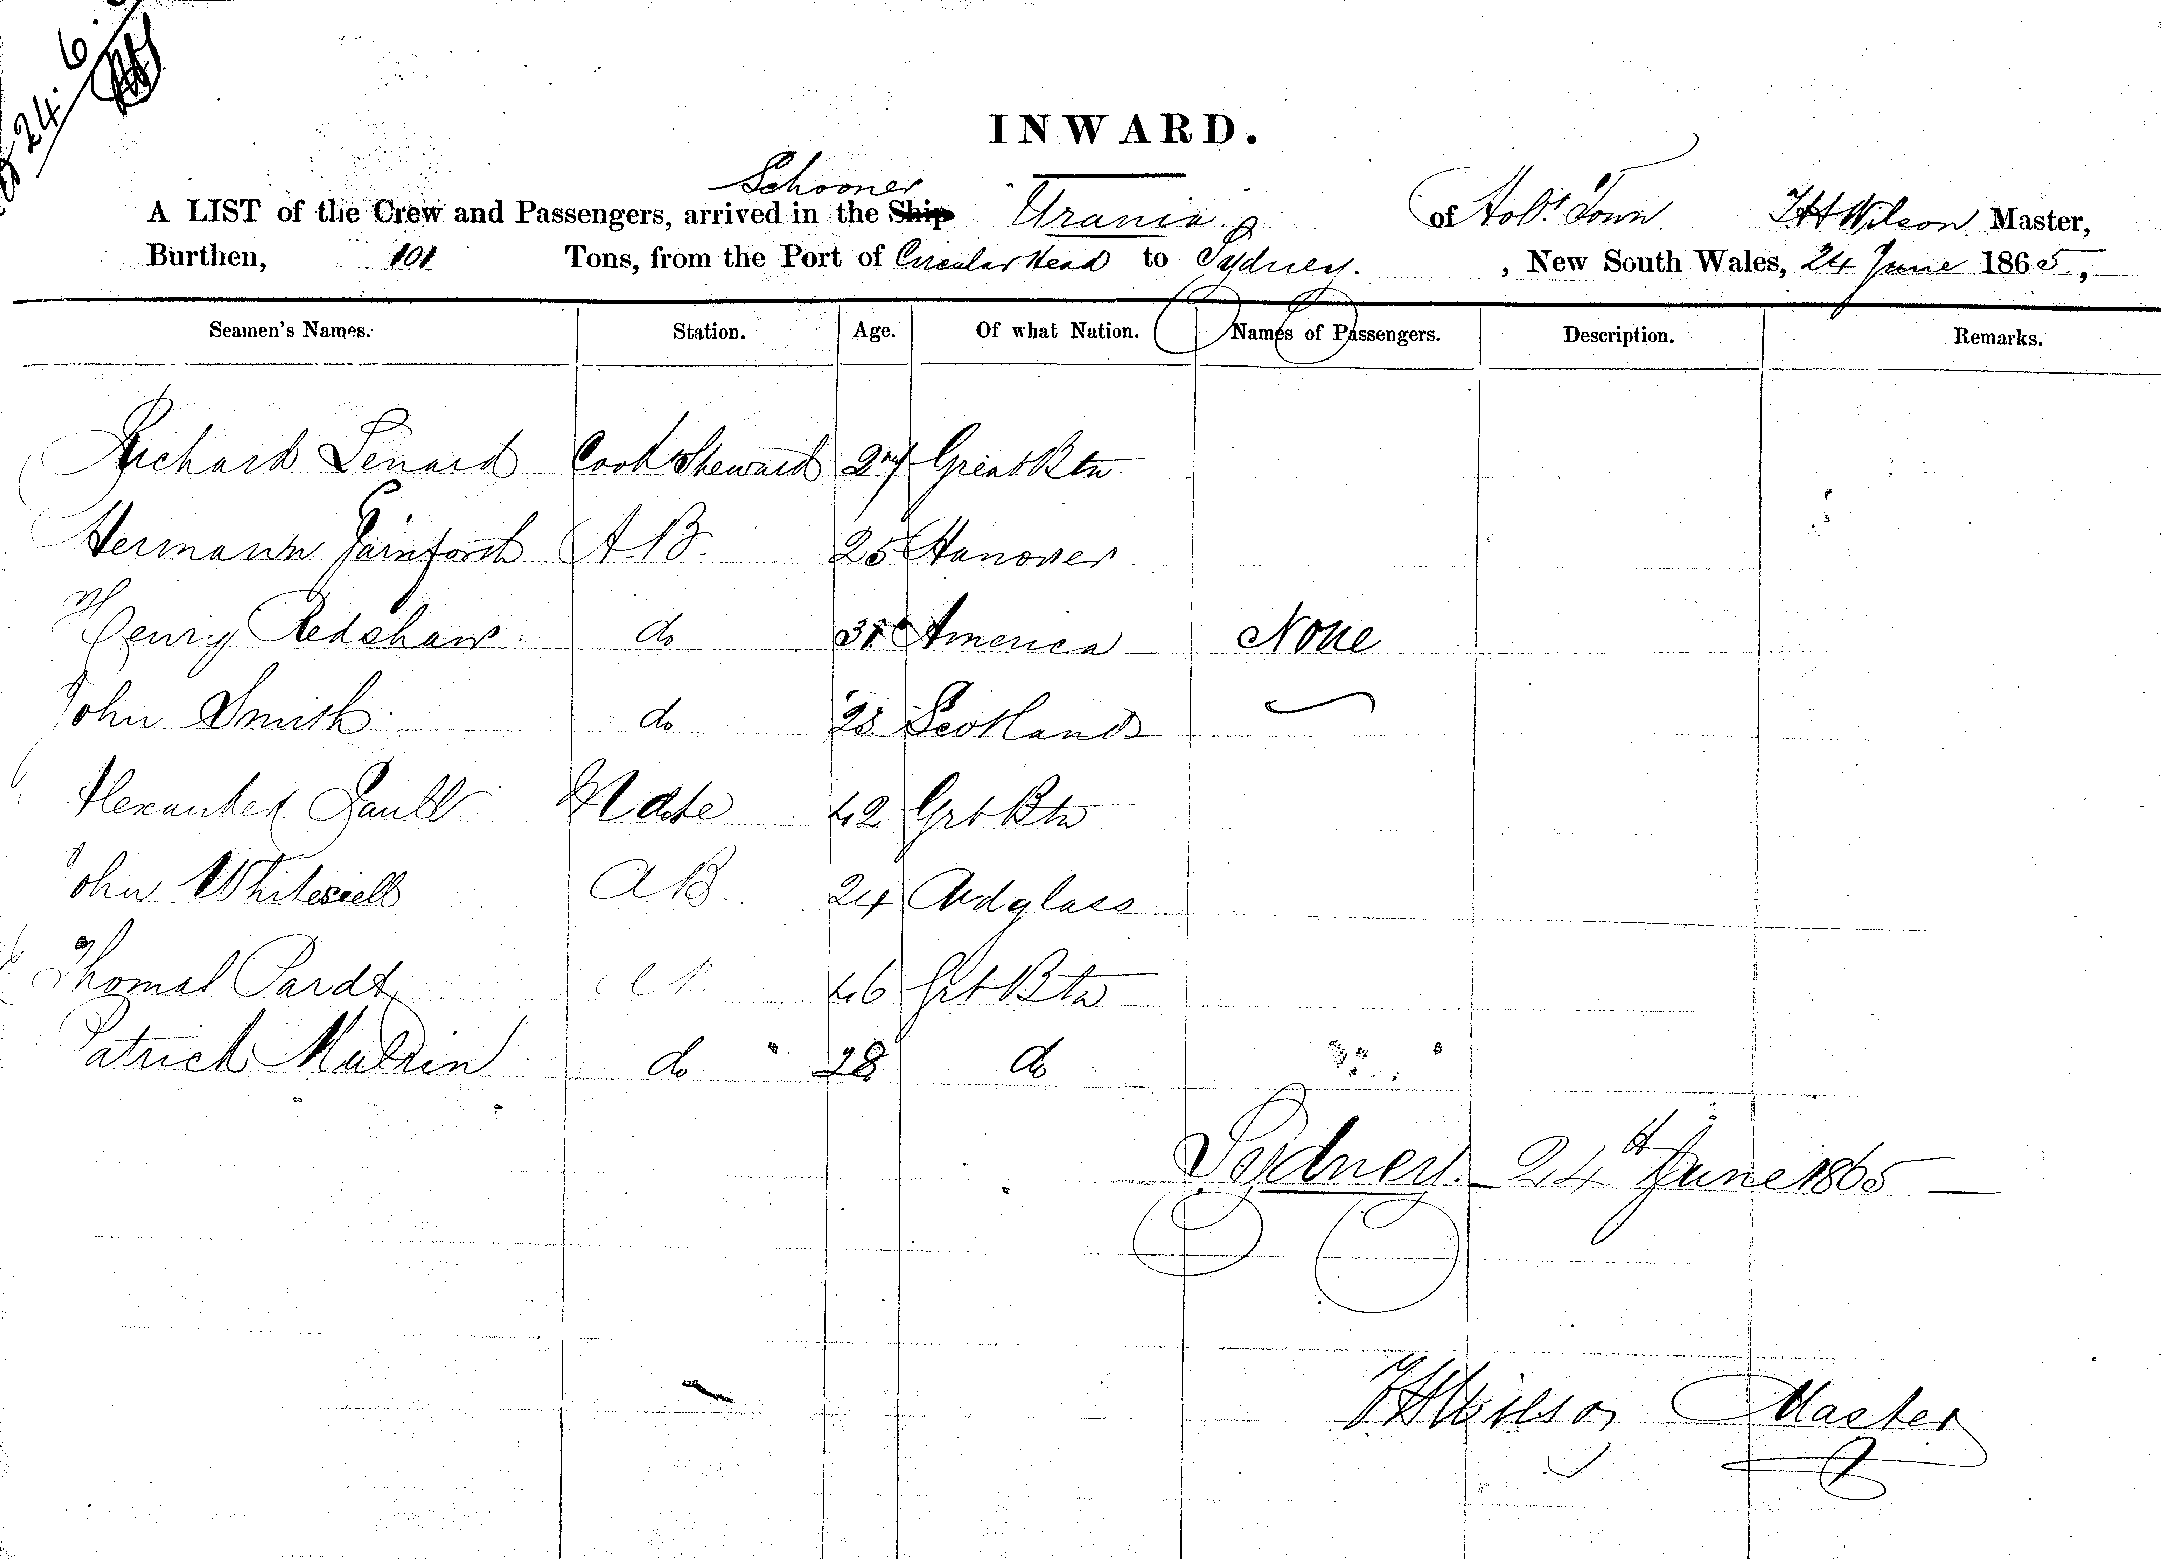 24.6.
INWARD.
Schooner
A LIST of the Crew and Passengers, arrived in the Ship Urania of Hob.t Town Wilson Master,
Burthen, 101 Tons, from the Port of Circular Head to Sydney. , New South Wales, 24 June 1865,
Seamen's Names. Station. Age. Of what Nation. Names of Passengers. Description. Remarks.
Richard Lenard Cook & Steward 27 Great Btn
Hermann A B. 25 Hanover
Henry Redshaw do America None
John Smith do Scotland
Alexander Mate 42 Grt Btn
John A B. 24 Ardglass
Thomas 46 Grt Btn
Patrick do 28 do
Sydney. 24th June 1865
Wilson Master